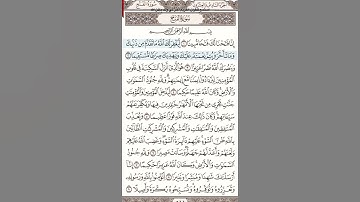 سُورَةُ الفَتْحِ
الجُزْءُ السَّادِسُ وَالعِشْرُونَ
سُورَةُ الفَتْحِ
بِسْمِ ٱللَّهِ ٱلرَّحْمَٰنِ ٱلرَّحِيمِ
إِنَّا فَتَحْنَا لَكَ فَتْحًا مُّبِينًا ١ لِّيَغْفِرَ لَكَ ٱللَّهُ مَا تَقَدَّمَ مِن ذَنۢبِكَ
وَمَا تَأَخَّرَ وَيُتِمَّ نِعْمَتَهُۥ عَلَيْكَ وَيَهْدِيَكَ صِرَٰطًا مُّسْتَقِيمًا ٢
وَيَنصُرَكَ ٱللَّهُ نَصْرًا عَزِيزًا ٣ هُوَ ٱلَّذِىٓ أَنزَلَ ٱلسَّكِينَةَ فِى قُلُوبِ
ٱلْمُؤْمِنِينَ لِيَزْدَادُوٓا۟ إِيمَٰنًا مَّعَ إِيمَٰنِهِمْ وَلِلَّهِ جُنُودُ ٱلسَّمَٰوَٰتِ
وَٱلْأَرْضِ وَكَانَ ٱللَّهُ عَلِيمًا حَكِيمًا ٤ لِّيُدْخِلَ ٱلْمُؤْمِنِينَ وَٱلْمُؤْمِنَٰتِ
جَنَّٰتٍ تَجْرِى مِن تَحْتِهَا ٱلْأَنْهَٰرُ خَٰلِدِينَ فِيهَا وَيُكَفِّرَ عَنْهُمْ
سَيِّـَٔاتِهِمْ وَكَانَ ذَٰلِكَ عِندَ ٱللَّهِ فَوْزًا عَظِيمًا ٥ وَيُعَذِّبَ
ٱلْمُنَٰفِقِينَ وَٱلْمُنَٰفِقَٰتِ وَٱلْمُشْرِكِينَ وَٱلْمُشْرِكَٰتِ ٱلظَّآنِّينَ
بِٱللَّهِ ظَنَّ ٱلسَّوْءِ عَلَيْهِمْ دَآئِرَةُ ٱلسَّوْءِ وَغَضِبَ ٱللَّهُ عَلَيْهِمْ
وَلَعَنَهُمْ وَأَعَدَّ لَهُمْ جَهَنَّمَ وَسَآءَتْ مَصِيرًا ٦ وَلِلَّهِ جُنُودُ
ٱلسَّمَٰوَٰتِ وَٱلْأَرْضِ وَكَانَ ٱللَّهُ عَزِيزًا حَكِيمًا ٧ إِنَّآ
أَرْسَلْنَٰكَ شَٰهِدًا وَمُبَشِّرًا وَنَذِيرًا ٨ لِّتُؤْمِنُوا۟ بِٱللَّهِ وَرَسُولِهِۦ
وَتُعَزِّرُوهُ وَتُوَقِّرُوهُ وَتُسَبِّحُوهُ بُكْرَةً وَأَصِيلًا ٩